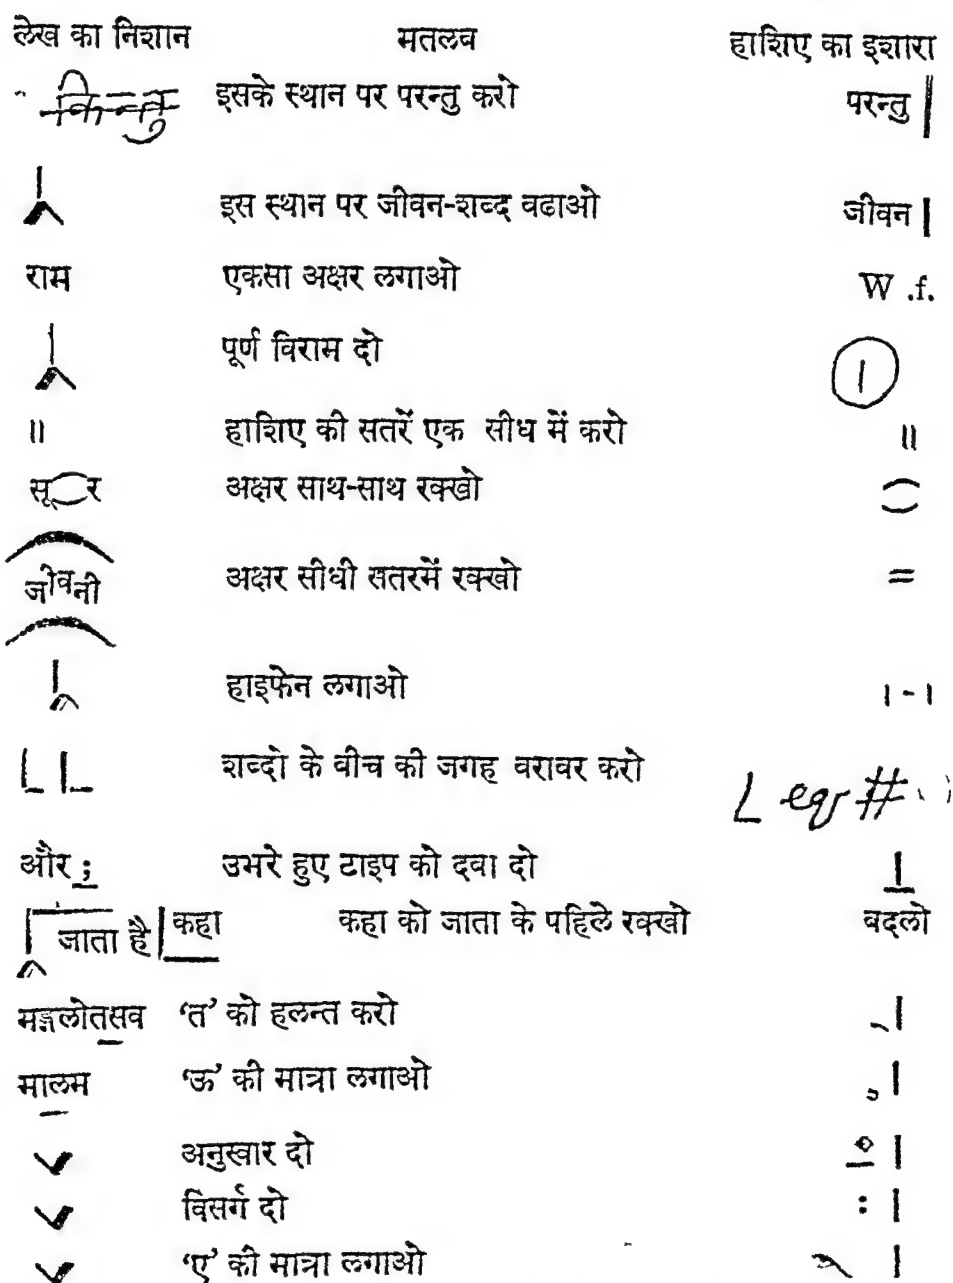 लेख का निशान मतलव हाशिए का इशारा
किन्तु इसके स्थान पर परन्तु करो परन्तु |
इस स्थान पर जीवन-शब्द वढाओ जीवन |
राम एकसा अक्षर लगाओ W .f.
पूर्ण विराम दो ।
॥ हाशिए की सतरें एक सीध में करो ॥
सू र अक्षर साथ-साथ रक्खो
जीवनी अक्षर सीधी सतरमें रक्खो =
हाइफेन लगाओ । - ।
शब्दो के वीच की जगह वरावर करो L eq #
और ; उभरे हुए टाइप को दवा दो
जाता है | कहा कहा को जाता के पहिले रक्खो बदलो
मङ्गलोतसव ‘त’ को हलन्त करो ् |
मालम ‘ऊ’ की मात्रा लगाओ |
अनुस्वार दो |
विसर्ग दो : |
‘ए’ की मात्रा लगाओ |